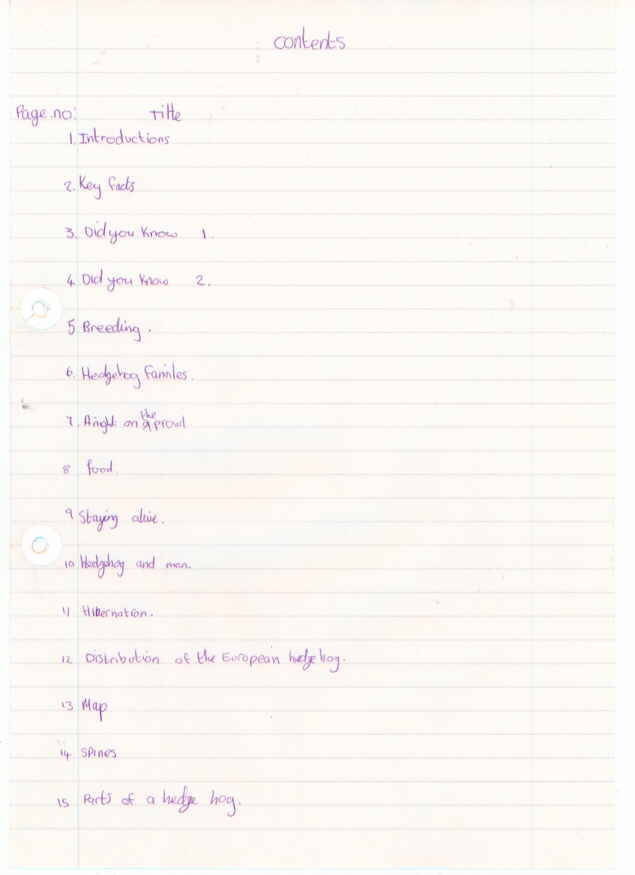 contents
Page.no: Title
1. Introductions
2. Key facts
3. Did you know 1.
4. Did you know 2.
5 Breeding.
6. Hedgehog Familes.
7. A night on the prowl
8 food.
9 Staying alive.
10 Hedgehog and man.
11 Hibernation.
12 Distribution of the European hedge hog.
13 Map
14 Spines
15 Parts of a hedge hog.